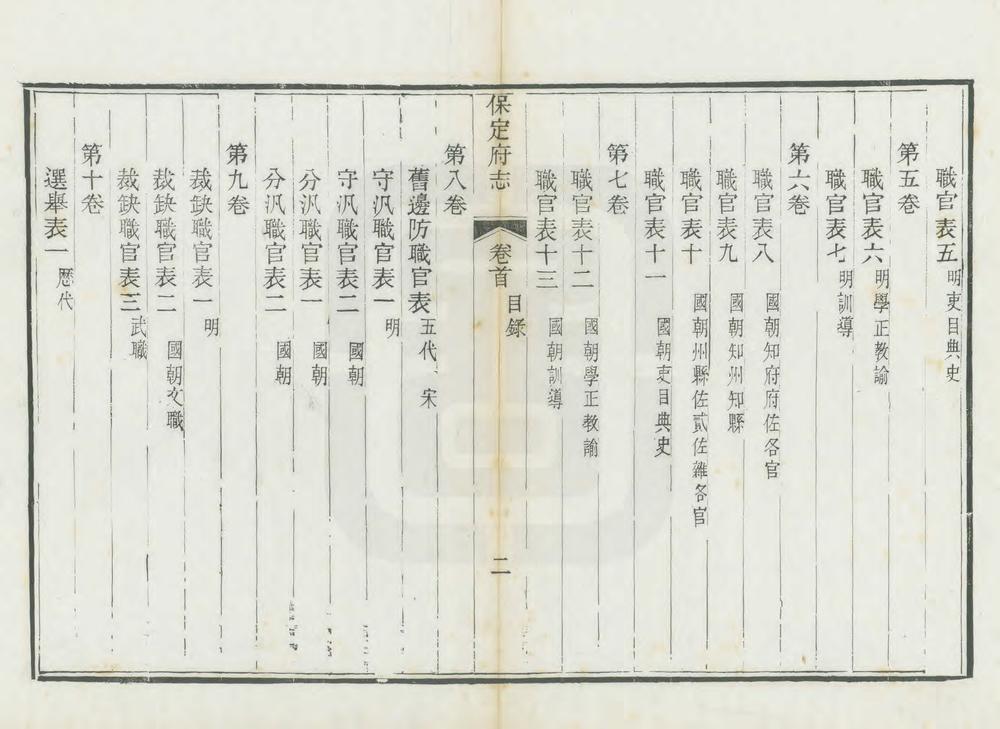 職官表五 明吏目典史
第五卷
職官表六 明學正教諭
職官表七 明訓導
第六卷
職官表八 國朝知府府佐各官
職官表九 國朝知州知縣
職官表十 國朝州縣佐貳佐雜各官
職官表十一 國朝吏目典史
第七卷
職官表十二 國朝學正教諭
職官表十三 國朝訓導
保定府志 卷首 目錄 二
第八卷
舊邊防職官表 五代、宋
守汛職官表一 明
守汛職官表二 國朝
分汛職官表一 國朝
分汛職官表二 國朝
第九卷
裁缺職官表一 明
裁缺職官表二 國朝文職
裁缺職官表三 武職
第十卷
選舉表一 歷代